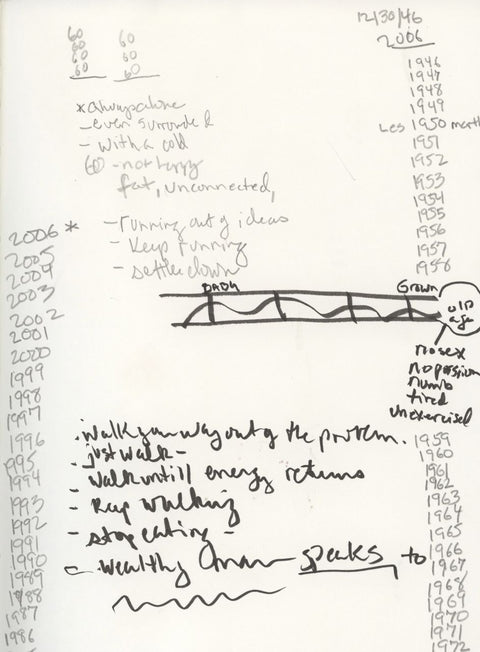 12/30/46
2006
60 60
60 60
60 60
60 60
1946
1947
1948
1949
Les 1950
1951
1952
1953
1954
1955
1956
1957
1958
* always alone
- even surrounded
- with a cold
60 - not happy
fat, unconnected,
- running out of ideas
- Keep running
- settle down
2006 *
2005
2004
2003
2002
2001
2000
1999
1998
1997
1996
1995
1994
1993
1992
1991
1990
1989
1988
1987
1986
Grown
old
age
no sex
no passion
numb
tired
unexercised
. Walk your way out of the problem.
- just walk -
- Walk untill energy returns
- Keep walking
- stop eating -
- wealthy man speaks to
1959
1960
1961
1962
1963
1964
1965
1966
1967
1968
1969
1970
1971
1972